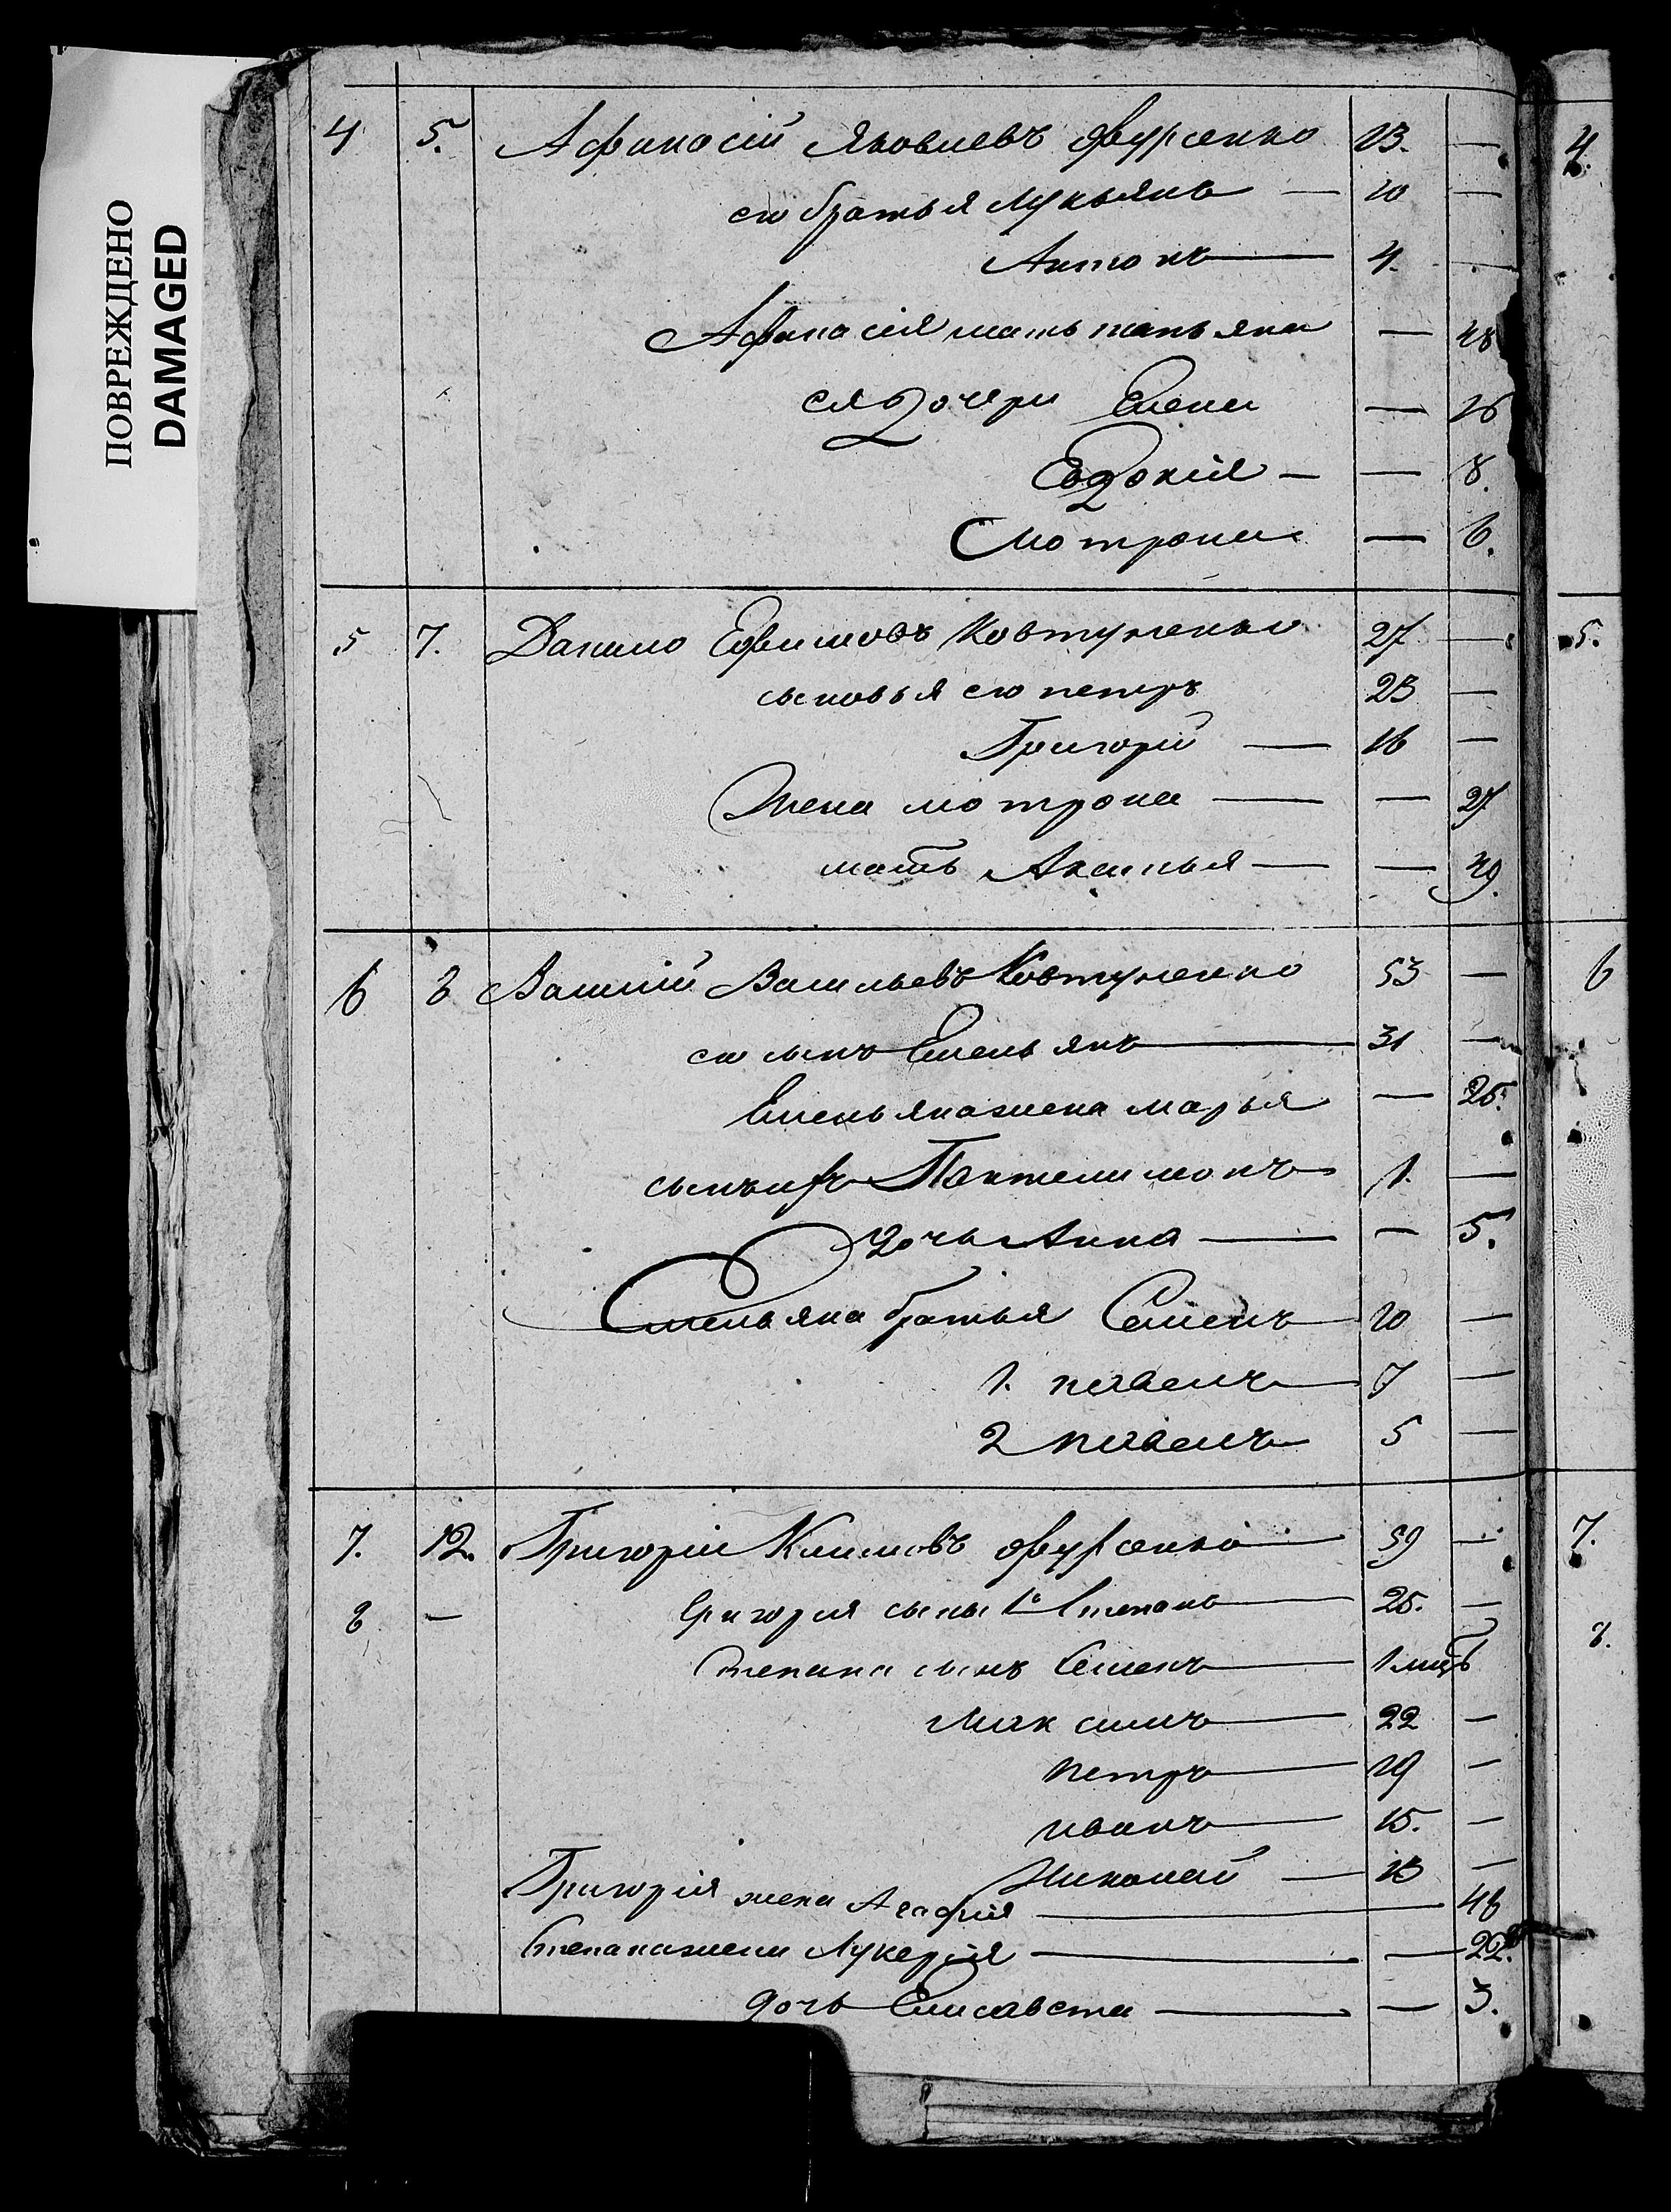 ПОВРЕЖДЕНО
DAMAGED
4 5. Афанасій Яковлевъ Фурсенко 13. — 4.
его братья Лукьянъ — 10 —
Антонъ — 4. —
Афанасія мать татьяна — 48
ея дочери Елена — 16
Евдокія — — 8.
Мотрона — 6.
5 7. Данило Ефимовъ Ковтуненко 27 — 5.
сыновья его петръ 23 —
Григорій — 16 —
Жена мотрона — — 27
мать Аксинья — — 49.
6 8 Василій Васильевъ Ковтуненко 53 — 6
его сынъ Емельянъ — 31 —
Емельяна жена марья — 25.
сынъ ихъ Пантелимонъ 1. —
дочь Анна — — 5.
Емельяна братья Семенъ 10 —
1. павелъ — 7 —
2 павелъ 5 —
7. 12. Григорій Климовъ Фурсенко — 59 — 7.
8 — Григорія сыны 1й Степанъ — 25. — 8.
Степана сынъ Семенъ — 1 мцъ
Максимъ — 22 —
петръ — 19 —
иванъ — 15. —
Николай — 13 —
Григорія жена Агафія — 46
Степана жена Лукерія — — 22.
дочь Елисавета — — 3.